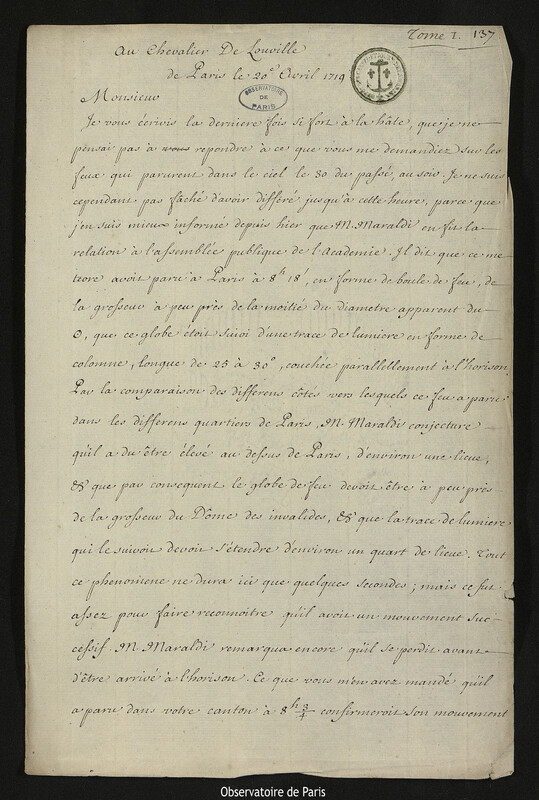 Tome I. 137
Au Chevalier De Louville
de Paris le 20e Avril 1719
OBSERVATOIRE
DE
PARIS
Monsieur
Je vous écrivis la derniere fois si fort à la hâte, que je ne
pensai pas à repondre à ce que vous me demandiez sur les
feux qui parurent dans le ciel le 30 du passé, au soir. Je ne suis
cependant pas fâché d'avoir différé jusqu'à cette heure, parce que
j'en suis mieux informé depuis hier que M. Maraldi en fit la
relation à l'assemblée publique de l'Academie. Il dit que ce me-
teore avoit paru à Paris à 8h 18', en forme de boule de feu, de
la grosseur à peu près de la moitié du diametre apparent du
☉, que ce globe étoit suivi d'une trace de lumiere en forme de
colomne, longue de 25 à 30°, couchée parallellement à l'horison
Par la comparaison des differens côtés vers lesquels ce feu a paru
dans les differens quartiers de Paris, M. Maraldi conjecture
qu'il a du être élevé au dessus de Paris, d'environ une lieue,
& que par consequent le globe de feu devoit être à peu près
de la grosseur du Dôme des invalides, & que la trace de lumiere
qui le suivoit devoit s'étendre d'environ un quart de lieue. Tout
ce phenomene ne dura ici que quelques secondes ; mais ce fut
assez pour faire reconnoitre qu'il avoit un mouvement suc-
cessif. M. Maraldi remarqua encore qu'il se perdit avant
d'être arrivé à l'horison. Ce que vous m'en avez mandé qu'il
a paru dans votre canton à 8h 3/4 confirmeroit son mouvement
Observatoire de Paris